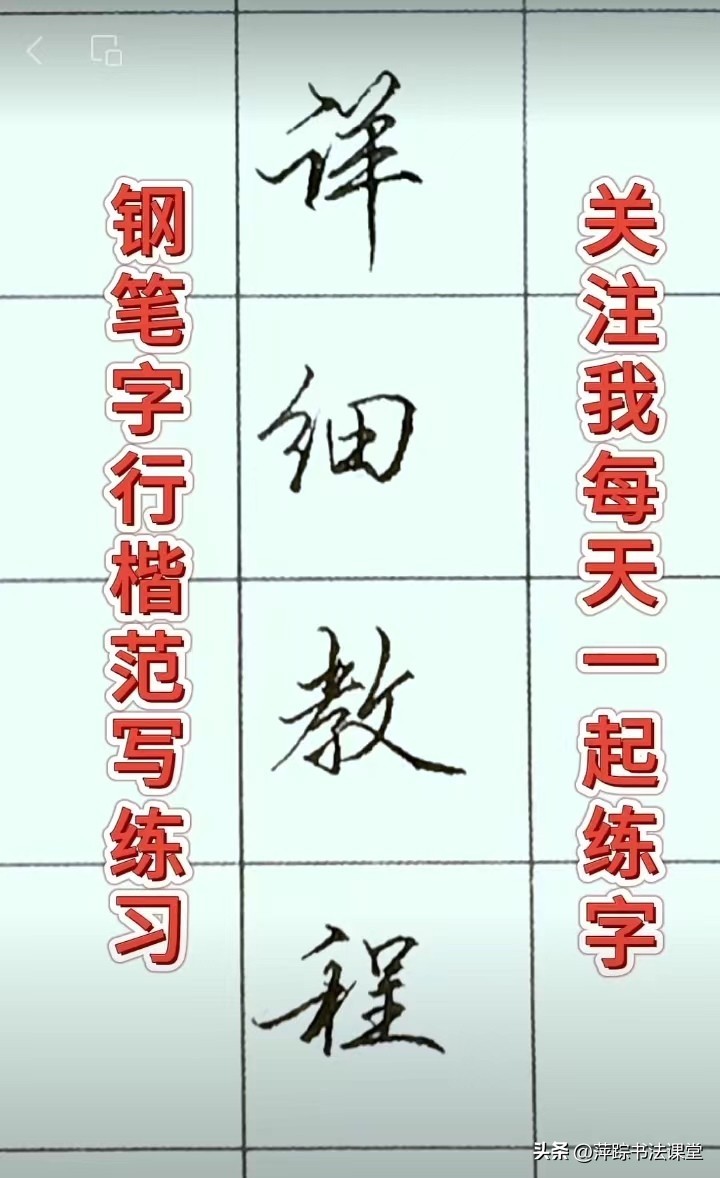 钢笔字行楷范写练习
详细教程
关注我每天一起练字
头条 @萍踪书法课堂